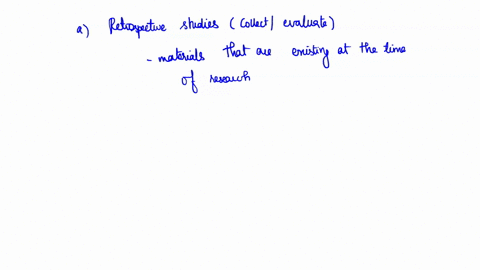 a) Retrospective studies (collect/ evaluate)
- materials that are existing at the time
of research